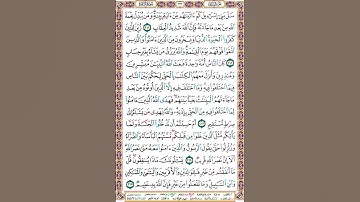 سَلْ بَنِىٓ إِسْرَٰٓءِيلَ كَمْ ءَاتَيْنَٰهُم مِّنْ ءَايَةٍۭ بَيِّنَةٍ وَمَن يُبَدِّلْ نِعْمَةَ
ٱللَّهِ مِنۢ بَعْدِ مَا جَآءَتْهُ فَإِنَّ ٱللَّهَ شَدِيدُ ٱلْعِقَابِ ٢١١ زُيِّنَ لِلَّذِينَ
كَفَرُوا۟ ٱلْحَيَوٰةُ ٱلدُّنْيَا وَيَسْخَرُونَ مِنَ ٱلَّذِينَ ءَامَنُوا۟ وَٱلَّذِينَ
ٱتَّقَوْا۟ فَوْقَهُمْ يَوْمَ ٱلْقِيَٰمَةِ وَٱللَّهُ يَرْزُقُ مَن يَشَآءُ بِغَيْرِ حِسَابٍ
٢١٢ كَانَ ٱلنَّاسُ أُمَّةً وَٰحِدَةً فَبَعَثَ ٱللَّهُ ٱلنَّبِيِّۦنَ مُبَشِّرِينَ
وَمُنذِرِينَ وَأَنزَلَ مَعَهُمُ ٱلْكِتَٰبَ بِٱلْحَقِّ لِيَحْكُمَ بَيْنَ ٱلنَّاسِ
فِيمَا ٱخْتَلَفُوا۟ فِيهِ وَمَا ٱخْتَلَفَ فِيهِ إِلَّا ٱلَّذِينَ أُوتُوهُ مِنۢ بَعْدِ
مَا جَآءَتْهُمُ ٱلْبَيِّنَٰتُ بَغْيًۢا بَيْنَهُمْ فَهَدَى ٱللَّهُ ٱلَّذِينَ ءَامَنُوا۟
لِمَا ٱخْتَلَفُوا۟ فِيهِ مِنَ ٱلْحَقِّ بِإِذْنِهِۦ وَٱللَّهُ يَهْدِى مَن يَشَآءُ إِلَىٰ
صِرَٰطٍ مُّسْتَقِيمٍ ٢١٣ أَمْ حَسِبْتُمْ أَن تَدْخُلُوا۟ ٱلْجَنَّةَ وَلَمَّا
يَأْتِكُم مَّثَلُ ٱلَّذِينَ خَلَوْا۟ مِن قَبْلِكُم مَّسَّتْهُمُ ٱلْبَأْسَآءُ وَٱلضَّرَّآءُ
وَزُلْزِلُوا۟ حَتَّىٰ يَقُولَ ٱلرَّسُولُ وَٱلَّذِينَ ءَامَنُوا۟ مَعَهُۥ مَتَىٰ نَصْرُ ٱللَّهِ
أَلَآ إِنَّ نَصْرَ ٱللَّهِ قَرِيبٌ ٢١٤ يَسْـَٔلُونَكَ مَاذَا يُنفِقُونَ قُلْ
مَآ أَنفَقْتُم مِّنْ خَيْرٍ فَلِلْوَٰلِدَيْنِ وَٱلْأَقْرَبِينَ وَٱلْيَتَٰمَىٰ وَٱلْمَسَٰكِينِ
وَٱبْنِ ٱلسَّبِيلِ وَمَا تَفْعَلُوا۟ مِنْ خَيْرٍ فَإِنَّ ٱللَّهَ بِهِۦ عَلِيمٌ ٢١٥